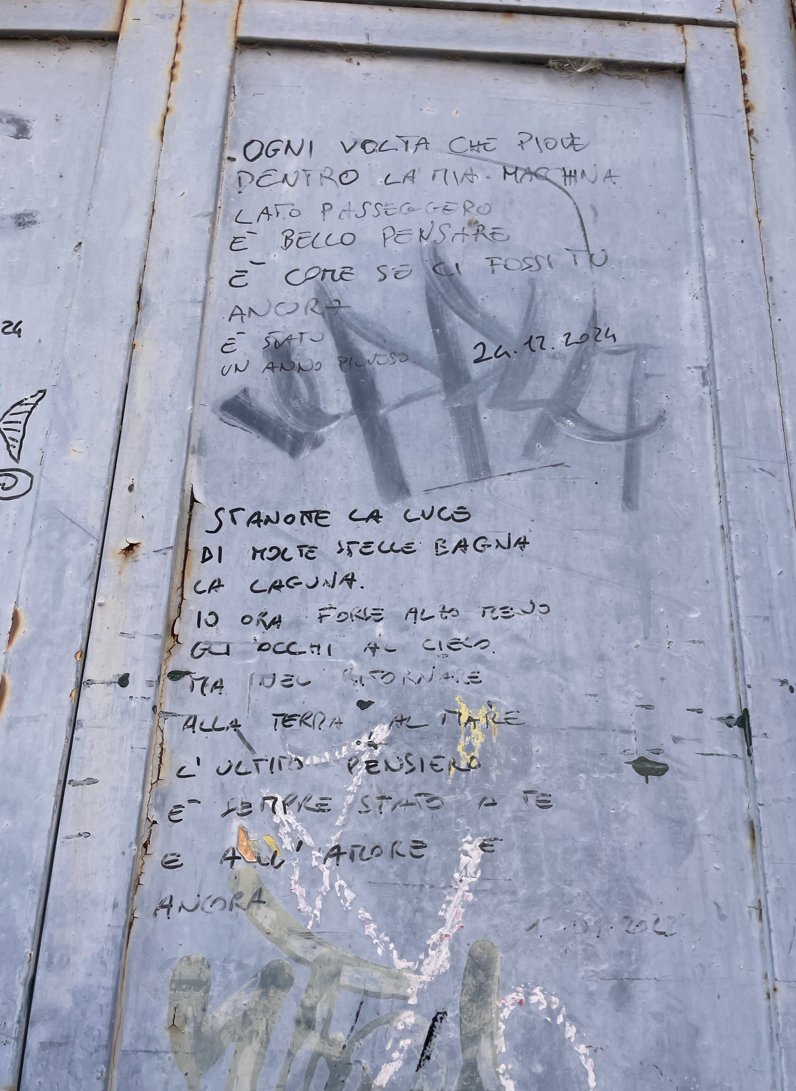 .OGNI VOLTA CHE PIOVE
DENTRO LA MIA MACCHINA
LATO PASSEGGERO
E' BELLO PENSARE
E' COME SE CI FOSSI TU
ANCORA
E' STATO
UN ANNO PIOVOSO.
24.12.2024
24
STANOTTE LA LUCE
DI MOLTE STELLE BAGNA
LA LAGUNA.
IO ORA FORSE ALZO MENO
GLI OCCHI AL CIELO.
MA NEL RITORNARE
ALLA TERRA AL MARE
L'ULTIMO PENSIERO
E' SEMPRE STATO A TE
E ALL'AMORE E
ANCORA